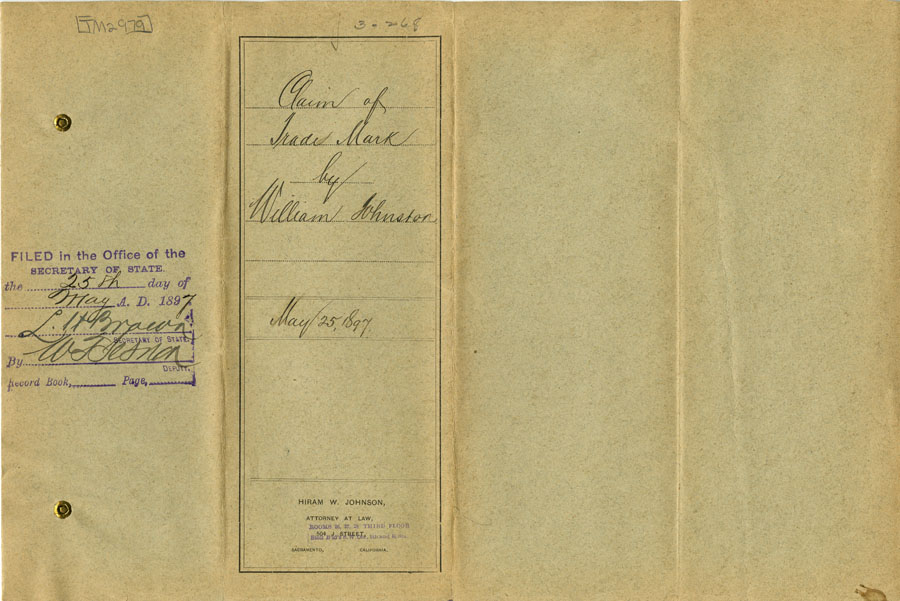 TM2979
3-268
Claim of
Trade Mark
by
William Johnston
May 25, 1897
FILED in the Office of the
SECRETARY OF STATE.
the 25th day of
May A. D. 1897
L. H. Brown
SECRETARY OF STATE
By
DEPUTY.
Record Book, Page,
HIRAM W. JOHNSON,
ATTORNEY AT LAW,
THIRD FLOOR
504 J STREET,
SACRAMENTO, CALIFORNIA.